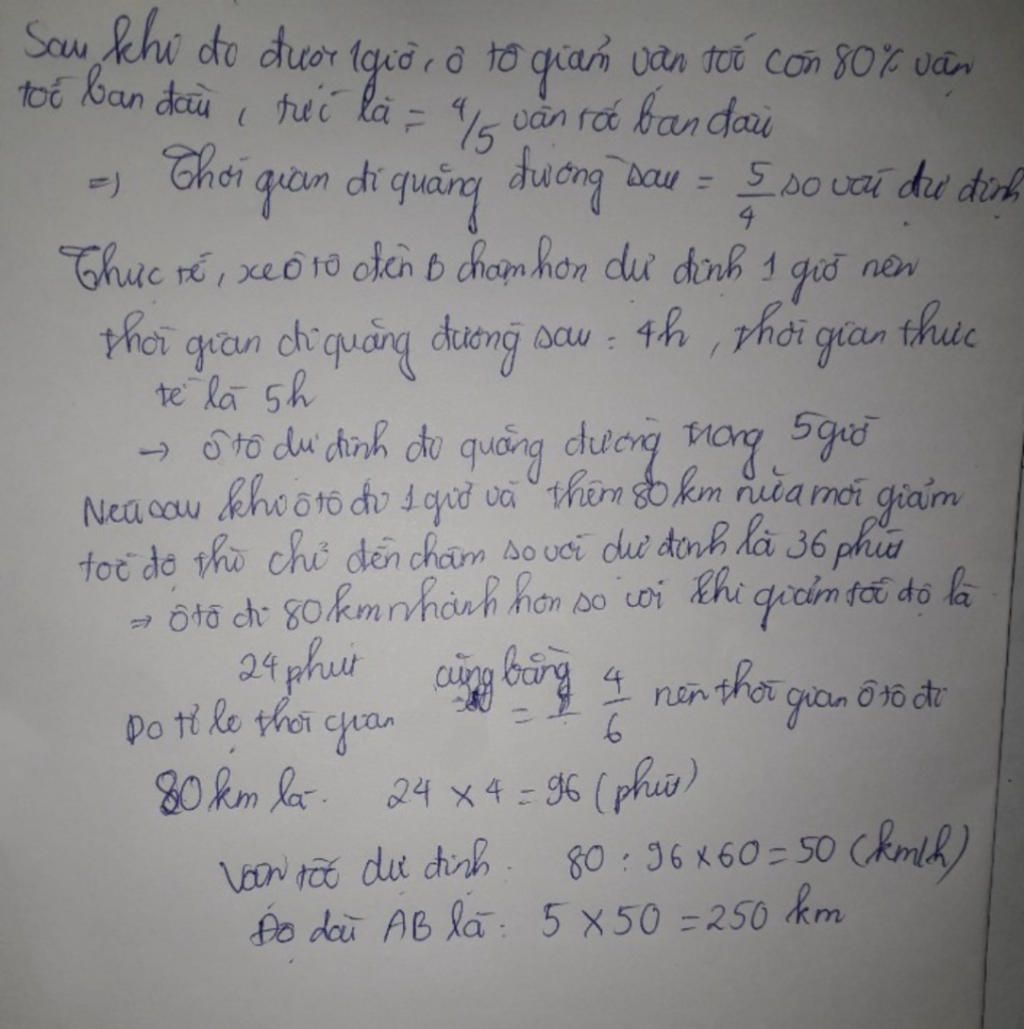 Sau khi đo được 1giờ, ô tô giảm vân tốc còn 80% vân
tốc ban đầu, tức là = 4/5 vân tốc ban đầu
=> Thời gian đi quãng đường sau = 5/4 so với dự định
Thực tế, xe ô tô đến B chậm hơn dự định 1 giờ nên
thời gian đi quãng đường sau : 4h, thời gian thực
tế là 5h
→ Ô tô dự định đo quãng đường trong 5 giờ
Nếu sau khi ô tô đo 1 giờ và thêm 80 km nữa mới giảm
tốc độ thì chỉ đến chậm so với dự định là 36 phút
⇒ Ô tô đi 80 km nhanh hơn so với khi giảm tốc độ là
24 phút
Do tỉ lệ thời gian cũng bằng = 4/6 nên thời gian ô tô đi
80 km là. 24 x 4 = 96 (phút)
Vân tốc dự định. 80 : 96 x 60 = 50 (km/h)
Độ dài AB là: 5 x 50 = 250 km